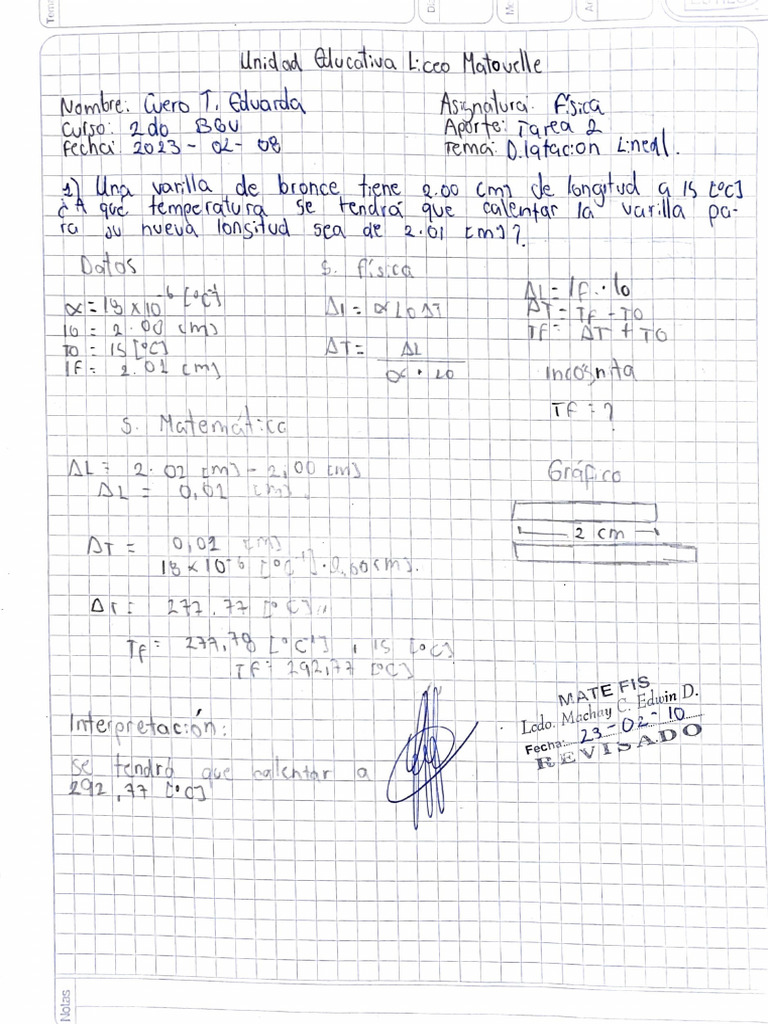 Unidad Educativa Liceo Matovelle
Nombre: Cuero T. Eduarda
Asignatura: Física
Curso: 2do BGU
Aporte: Tarea 2
Fecha: 2023-02-08
Tema: Dilatacion Lineal.
1) Una varilla de bronce tiene 2.00 [m] de longitud a 15 [°C]
¿A qué temperatura se tendrá que calentar la varilla pa-
ra su nueva longitud sea de 2.01 [m]?
Datos
S. Física
α = 18 x 10^-6 [°C^-1]
lo = 2.00 [m]
To = 15 [°C]
lf = 2.01 [m]
Δl = α Lo ΔT
ΔT = ΔL
α · Lo
ΔL = lf · lo
ΔT = Tf - To
Tf = ΔT + To
Incógnita
Tf = ?
S. Matemático
ΔL = 2.01 [m] - 2,00 [m]
ΔL = 0,01 [m]
Gráfico
2 cm
ΔT = 0,01 [m]
18 x 10^-6 [°C^-1] · 2,00 [m].
ΔT = 277,77 [°C]
Tf = 277,78 [°C^-1] , 15 [°C]
Tf = 292,77 [°C]
Interpretación:
Se tendrá que calentar a
292,77 [°C]
MATE FIS
Lcdo. Machay C. Edwin D.
Fecha: 23-02-10
REVISADO
Notas